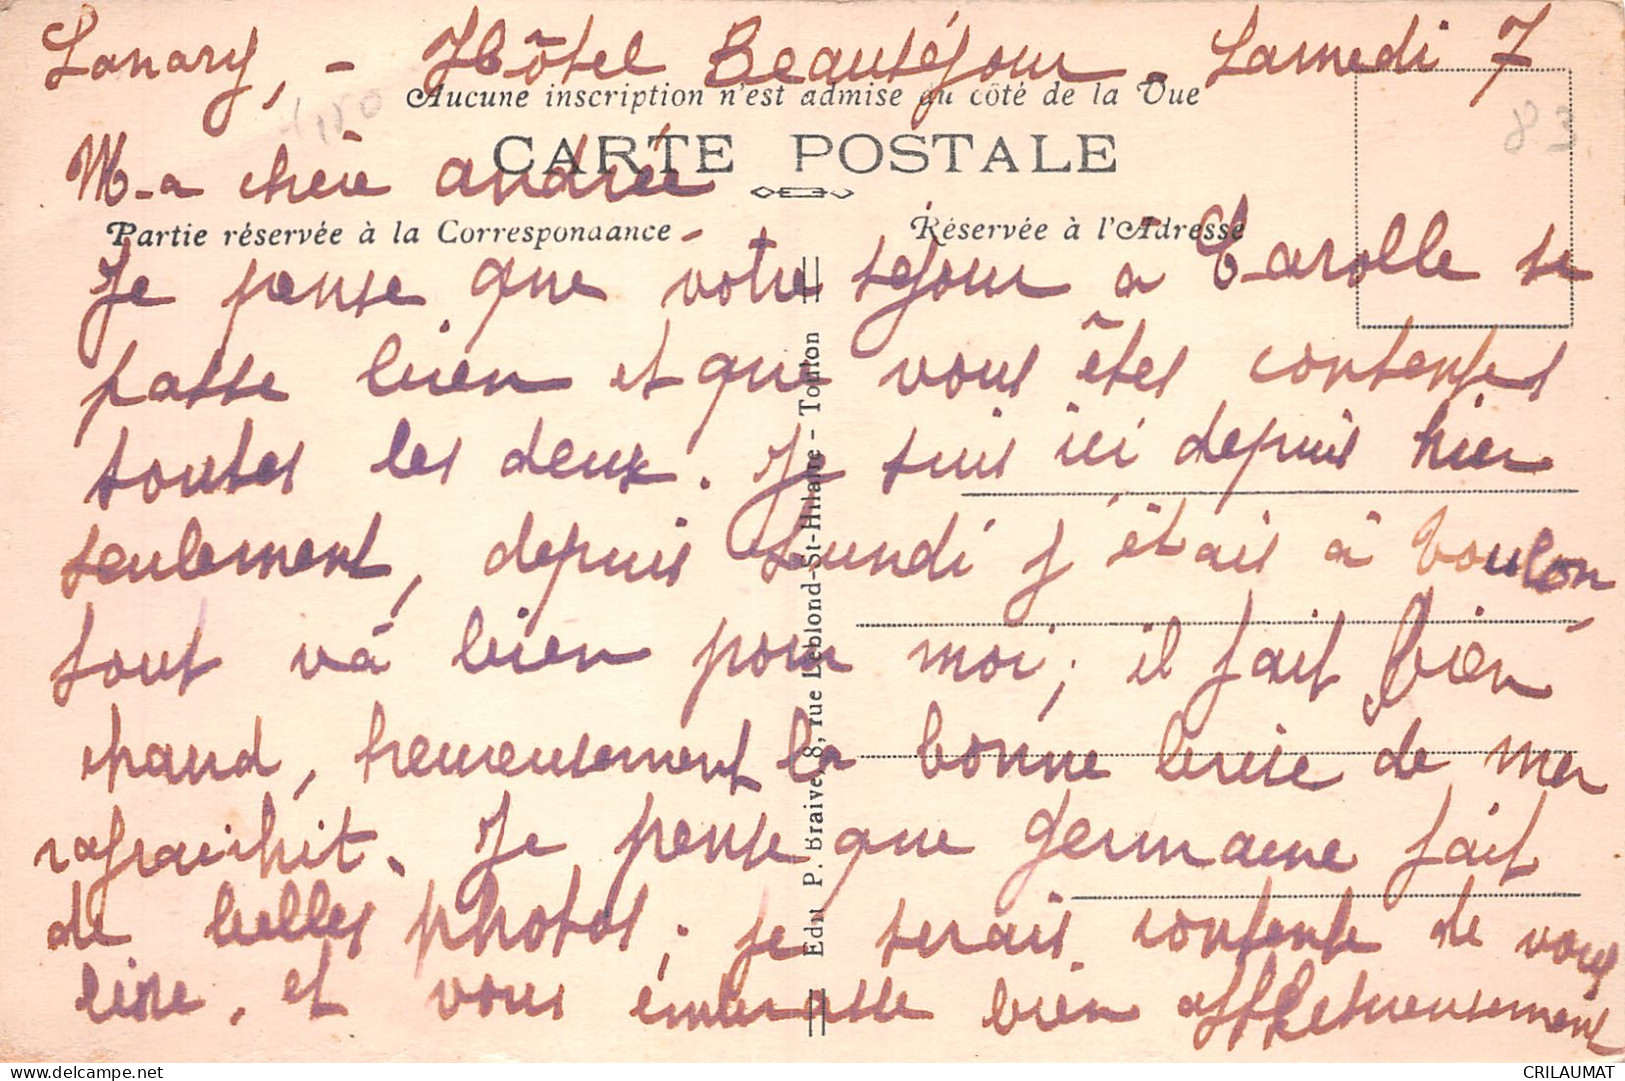 Sanary, - Hôtel Beauséjour. Samedi 7
Aucune inscription n'est admise au côté de la Vue
CARTE POSTALE
83
Ma chère andrée
Partie réservée à la Correspondance
Réservée à l'Adresse
Je pense que votre séjour à Carolle se
passe bien et que vous êtes contentes
toutes les deux. Je suis ici depuis hier
seulement, depuis Lundi j'étais à Toulon,
tout và bien pour moi; il fait bien
chaud, heureusement la bonne brise de mer
rafraichit. Je pense que germaine fait
de belles photos; je serais contente de vous
lire, et vous embrasse bien affectueusement
Edit P. Braive, 8, rue Leblond-St-Hilaire - Toulon
delcampe.net
CRILAUMAT